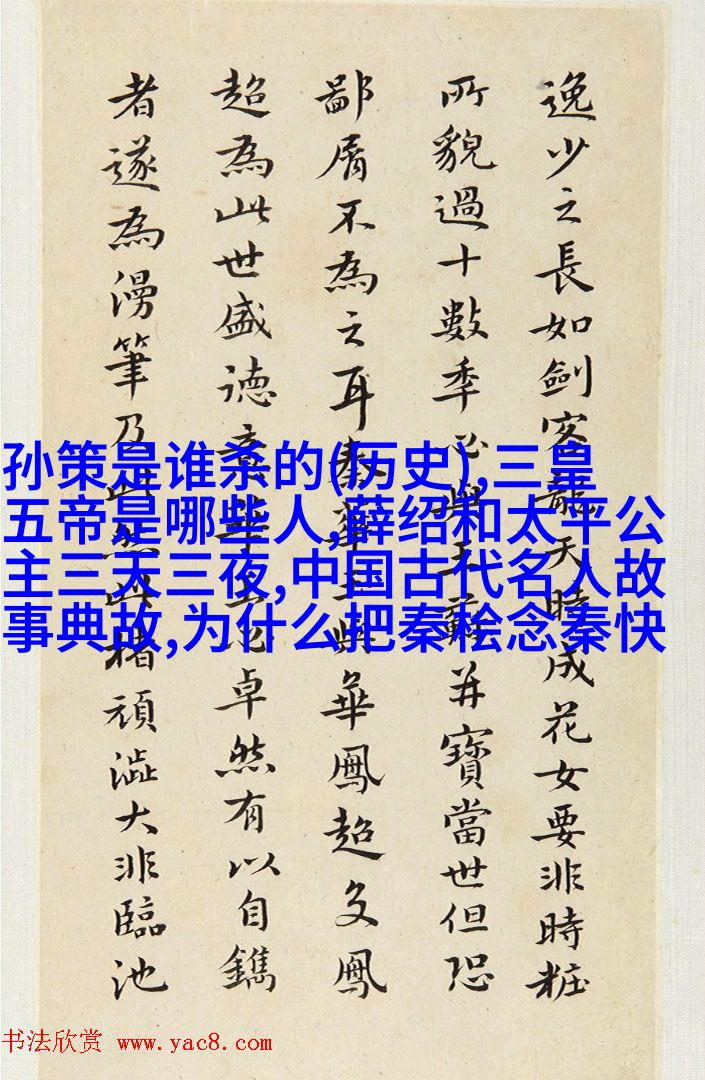 逸少之長如劍客龍天時成花女要非時粧
所貌過十數季心與王蘇并寶當世但恐
鄙屑不為之耳與華鳳超文鳳
超為此世盛德卓然有以自鐫
者遂為漫筆乃此然此楮頑澁大非臨池
孙策是谁杀的(历史),三皇
五帝是哪些人,薛绍和太平公
主三天三夜,中国古代名人故
事典故,为什么把秦桧念秦快
书法欣赏 www.yac8.com